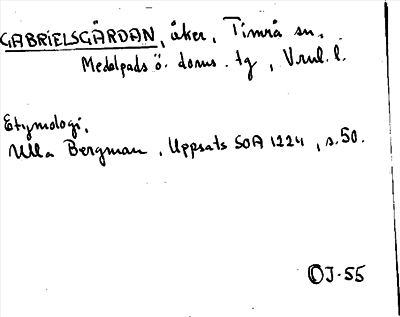 GABRIELSGÅRDAN, åker, Timrå sn,
Medelpads ö. doms. tg,
Etymologi,
Ulla Bergman, Uppsats SOA 1224, s. 50.
OJ-55